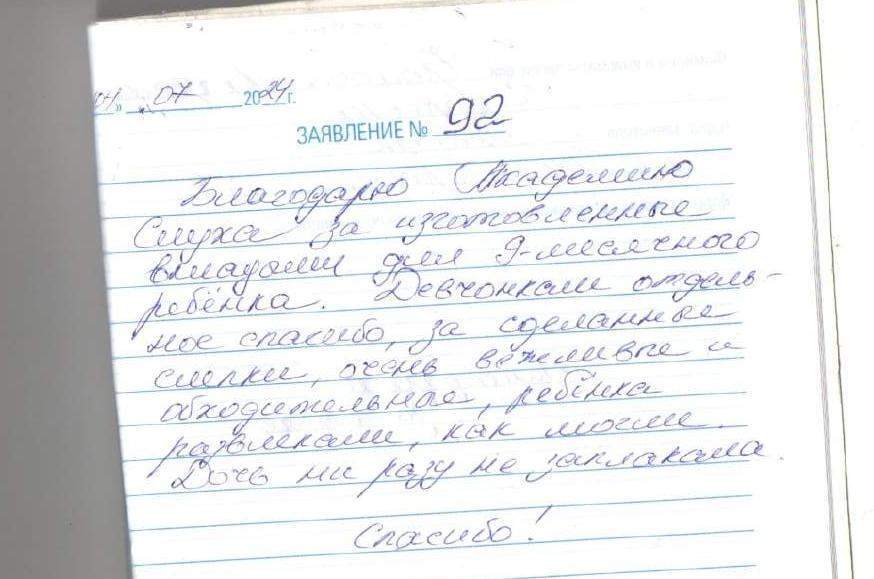 04» 07 2024 г.
ЗАЯВЛЕНИЕ № 92
Благодарю Академию
Слуха за изготовленные
вкладыши для 9-месячного
ребёнка. Девчонкам отдель-
ное спасибо, за сделанные
слепки, очень вежливые и
обходительные, ребёнка
развлекали, как могли.
Дочь ни разу не заплакала.
Спасибо!